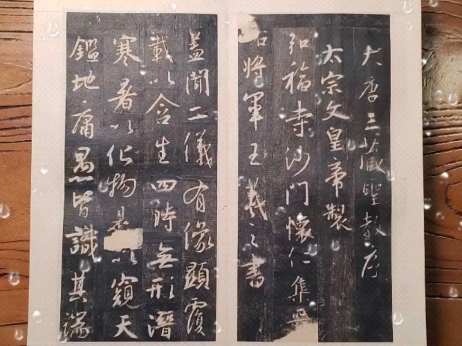 大唐三藏聖教序
太宗文皇帝製
弘福寺沙門懷仁集晉
右將軍王羲之書
蓋聞二儀有像顯覆
載以含生四時無形潛
寒暑以化物是以窺天
鑑地庸愚皆識其端